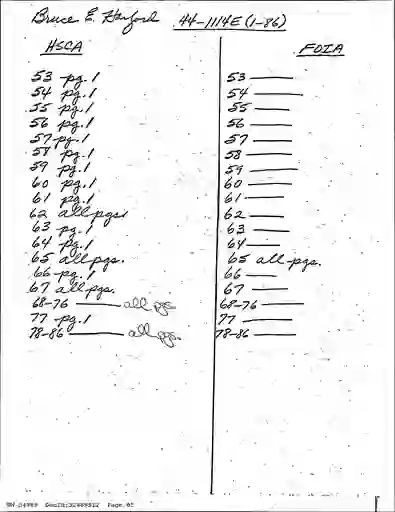 Bruce E. 44-1114E (1-86)
HSCA
53 pg. 1
54 pg. 1
55 pg. 1
56 pg. 1
57 pg. 1
58 pg. 1
59 pg. 1
60 pg. 1
61 pg. 1
62 all pgs.
63 pg. 1
64 pg. 1
65 all pgs.
66 pg. 1
67 all pgs.
68-76 — all pgs.
77 pg. 1
78-86 — all pgs.
FOIA
53 —
54 —
55 —
56 —
57 —
58 —
59 —
60 —
61 —
62 —
63 —
64 —
65 all pgs.
66 —
67 —
68-76 —
77 —
78-86 —
Page